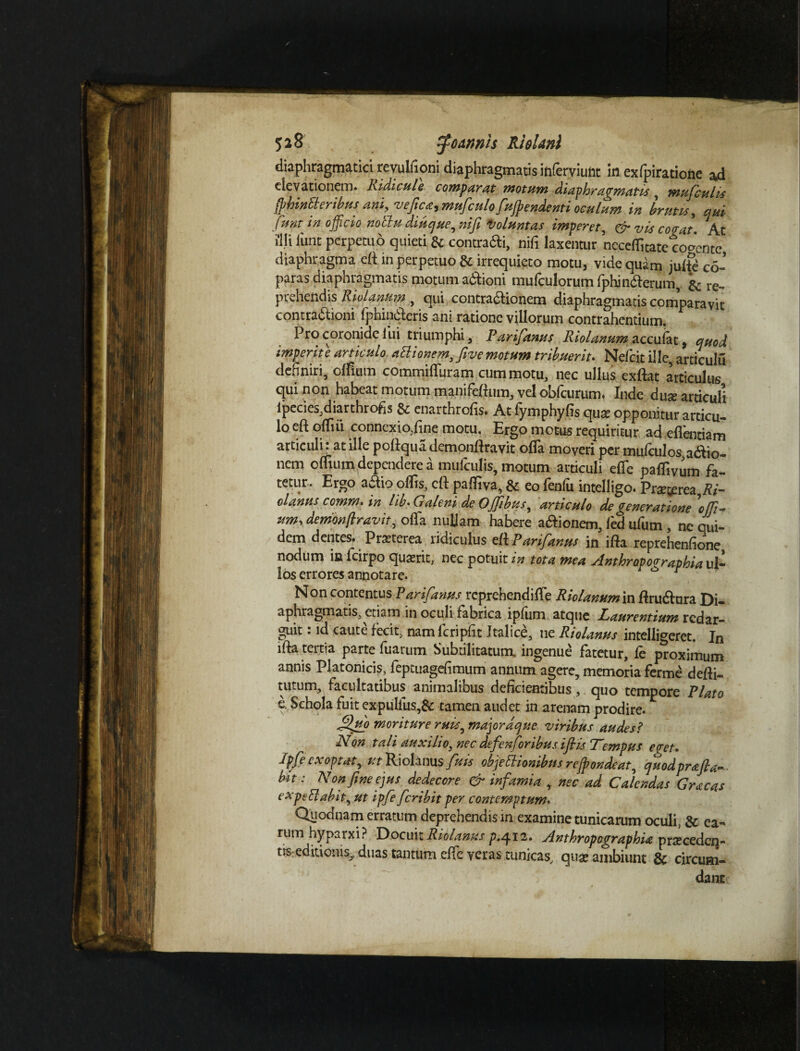 528 Joannis Riolani
diaphragmatici revulſioni diaphragmatis inſerviunt in exſpiratione ad
elevationem. Ridicule comparat motum diaphragmatis, muſculis
ſphincteribus ani, veſicæ, muſculo ſuſpendenti oculum in brutis, qui
ſunt in officio noctu diuque, niſi voluntas imperet, & vis cogat. At
illi ſunt perpetuò quieti & contracti, niſi laxentur neceſſitate cogente,
diaphragma eſt in perpetuo & irrequieto motu, vide quàm juſtè cõ-
paras diaphragmatis motum actioni muſculorum ſphincterum, & re-
prehendis Riolanum, qui contractionem diaphragmatis comparavit
contractioni ſphincteris ani ratione villorum contrahentium.
Pro coronide ſui triumphi, Pariſanus Riolanum accuſat, quod
imperitè articulo actionem, ſive motum tribuerit. Neſcit ille, articulũ
definiri, oſſium commiſſuram cum motu, nec ullus exſtat articulus
qui non habeat motum manifeſtum, vel obſcurum. Inde duæ articuli
ſpecies, diarthroſis & enarthroſis. At ſymphyſis quæ opponitur articu-
lo eſt oſſiũ connexio, ſine motu. Ergo motus requiritur ad eſſentiam
articuli: at ille poſtquã demonſtravit oſſa moveri per muſculos, actio-
nem oſſium dependere à muſculis, motum articuli eſſe paſſivum fa-
tetur. Ergo actio oſſis, eſt paſſiva, & eo ſenſu intelligo. Præterea, Ri-
olanus comm. in lib. Galeni de Oſſibus, articulo de generatione oſſi-
um, demonſtravit, oſſa nullam habere actionem, ſed uſum, ne qui-
dem dentes. Præterea ridiculus eſt Pariſanus in iſta reprehenſione,
nodum in ſcirpo quærit, nec potuit in tota mea Anthropographia ul-
los errores annotare.
Non contentus Pariſanus reprehendiſſe Riolanum in ſtructura Di-
aphragmatis, etiam in oculi fabrica ipſum atque Laurentium redar-
guit: id cautè fecit, nam ſcripſit Italicè, ne Riolanus intelligeret. In
iſta tertia parte ſuarum Subtilitatum, ingenuè fatetur, ſe proximum
annis Platonicis, ſeptuageſimum annum agere, memoria fermè deſti-
tutum, facultatibus animalibus deficientibus, quo tempore Plato
è Schola fuit expulſus, & tamen audet in arenam prodire.
Quo moriture ruis, majoráque viribus audes?
Non tali auxilio, nec defenſoribus iſtis Tempus eget.
Ipſe exoptat, ut Riolanus ſuis objectionibus reſpondeat, quod præſta-
bit: Non ſine ejus dedecore & infamia, nec ad Calendas Græcas
expectabit, ut ipſe ſcribit per contemptum.
Quodnam erratum deprehendis in examine tunicarum oculi, & ea-
rum hyparxi? Docuit Riolanus p. 412. Anthropographiæ præceden-
tis editionis, duas tantum eſſe veras tunicas, quæ ambiunt & circum-
dant